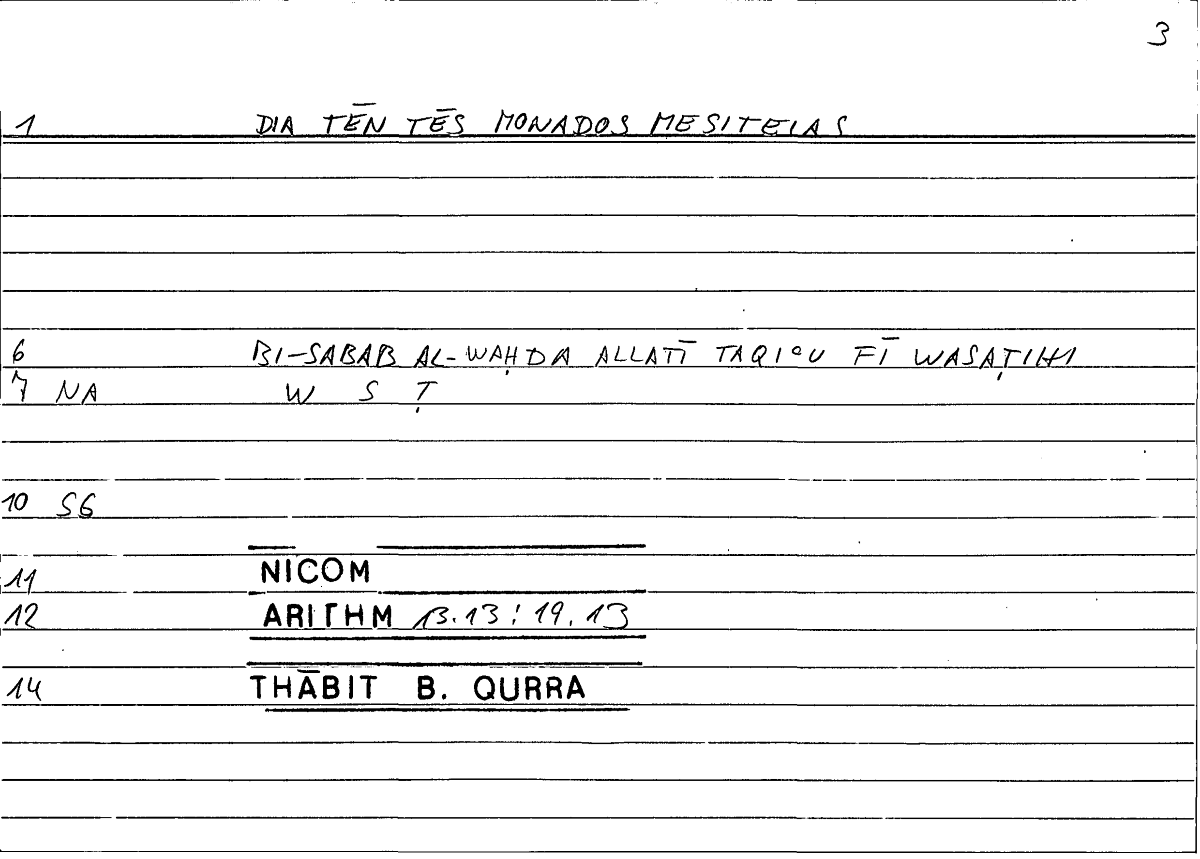 3
1 DIA TĒN TĒS MONADOS MESITEIAS
6 BI-SABAB AL-WAḤDA ALLATĪ TAQIʿU FĪ WASAṬIHI
7 NA W S Ṭ
10 SG
11 NICOM
12 ARITHM 13.13 : 19.13
14 THĀBIT B. QURRA